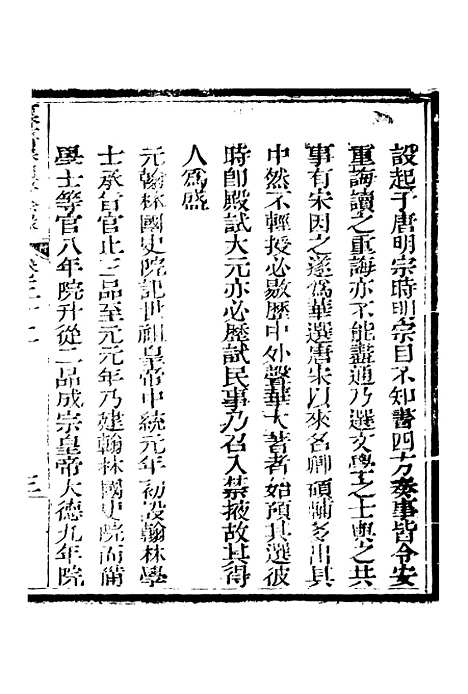 設起于唐明宗時明宗目不知書四方奏事皆令安
重誨讀之重誨亦不能盡通乃選文學之士與之共
事有宋因之遂爲華選唐宋以來名卿碩輔多出其
中然不輕授必敭歷中外聲華大著者始預其選彼
時卽殿試大元亦必歷試民事乃召入禁掖故其得
人爲盛
元翰林國史院記世祖皇帝中統元年初設翰林學
士承旨官止三品至元元年乃建翰林國史院而備
學士等官八年院升從二品成宗皇帝大德九年院
卷三十二
三